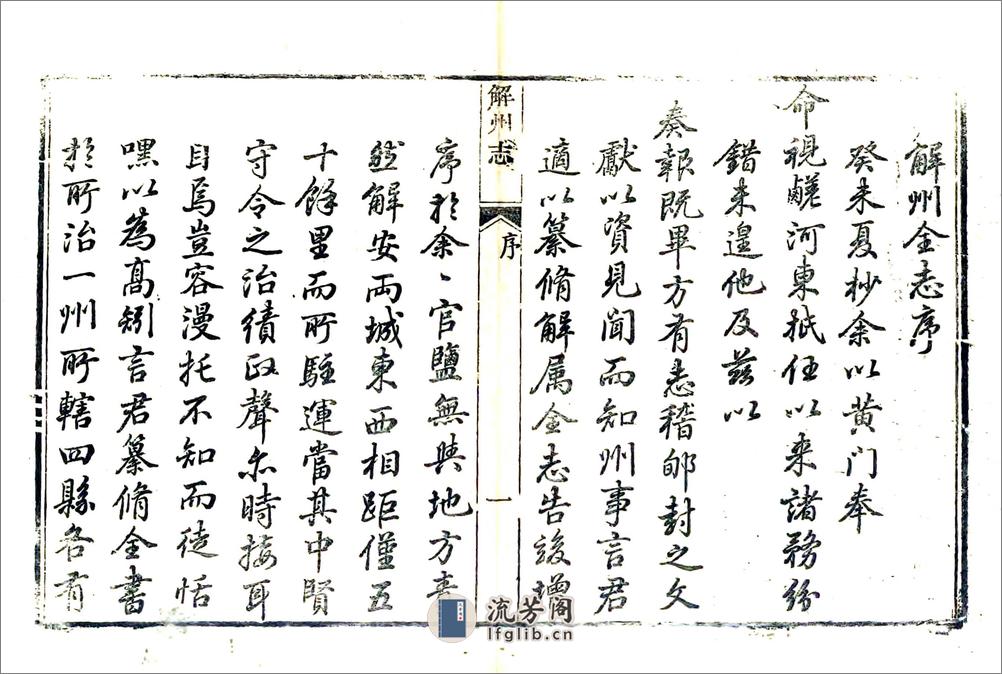 解州全志序
癸未夏杪余以黃门奉
命視鹺河東抵任以来諸務紛
錯未遑他及兹以
奏報既畢方有志稽郇封之文
獻以資見聞而知州事言君
適以纂脩解属全志告竣
解州志
序
一
序於余〻官鹽無與地方事
然解安兩城東西相距僅五
十餘里而所駐運當其中賢
守令之治績政聲亦時接耳
目焉豈容漫托不知而徒恬
嘿以為髙矧言君纂脩全書
於所治一州所轄四縣各有
流芳閣
lfglib.cn